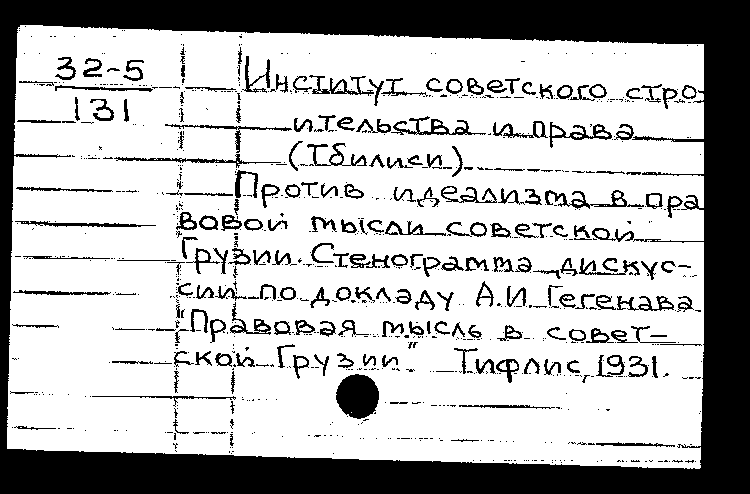 32-5
131
Институт советского стро-
ительства и права
(Тбилиси)
Против идеализма в пра
вовой мысли советской
Грузии. Стенограмма дискус-
сии по докладу А.И Гегенава
"Правовая мысль в совет-
ской Грузии". Тифлис, 1931.